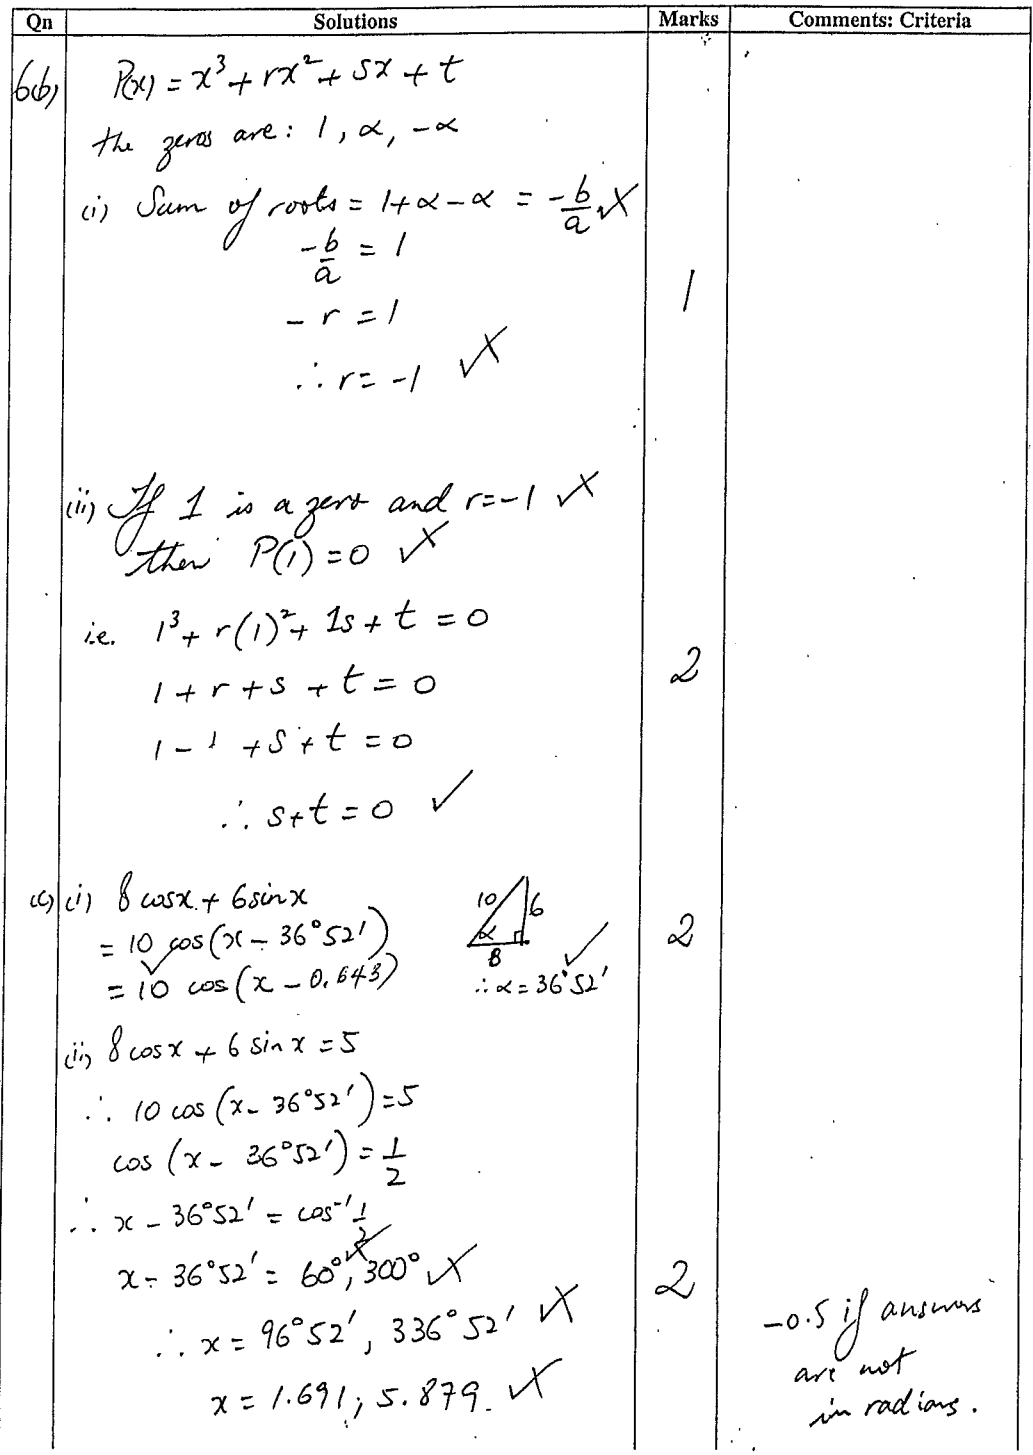 Qn Solutions Marks Comments: Criteria
6(b) P(x) = x³ + rx² + sx + t
the zeros are: 1, α, -α
(i) Sum of roots = 1+α-α = -b/a
-b/a = 1
-r = 1
1
∴ r = -1
(ii) If 1 is a zero and r=-1
then P(1) = 0
i.e. 1³ + r(1)² + 1s + t = 0
1 + r + s + t = 0
2
1 - 1 + s + t = 0
∴ s+t = 0 ✓
(c) (i) 8 cosx + 6 sinx
10 6
= 10 cos(x - 36°52')
α
2
8
= 10 cos(x - 0.643)
∴ α = 36°52'
(ii) 8 cosx + 6 sin x = 5
∴ 10 cos(x - 36°52') = 5
cos(x - 36°52') = 1/2
∴ x - 36°52' = cos⁻¹ 1/2
x - 36°52' = 60°, 300°
2
∴ x = 96°52', 336°52'
x = 1.691; 5.879.
-0.5 if answers
are not
in radians.